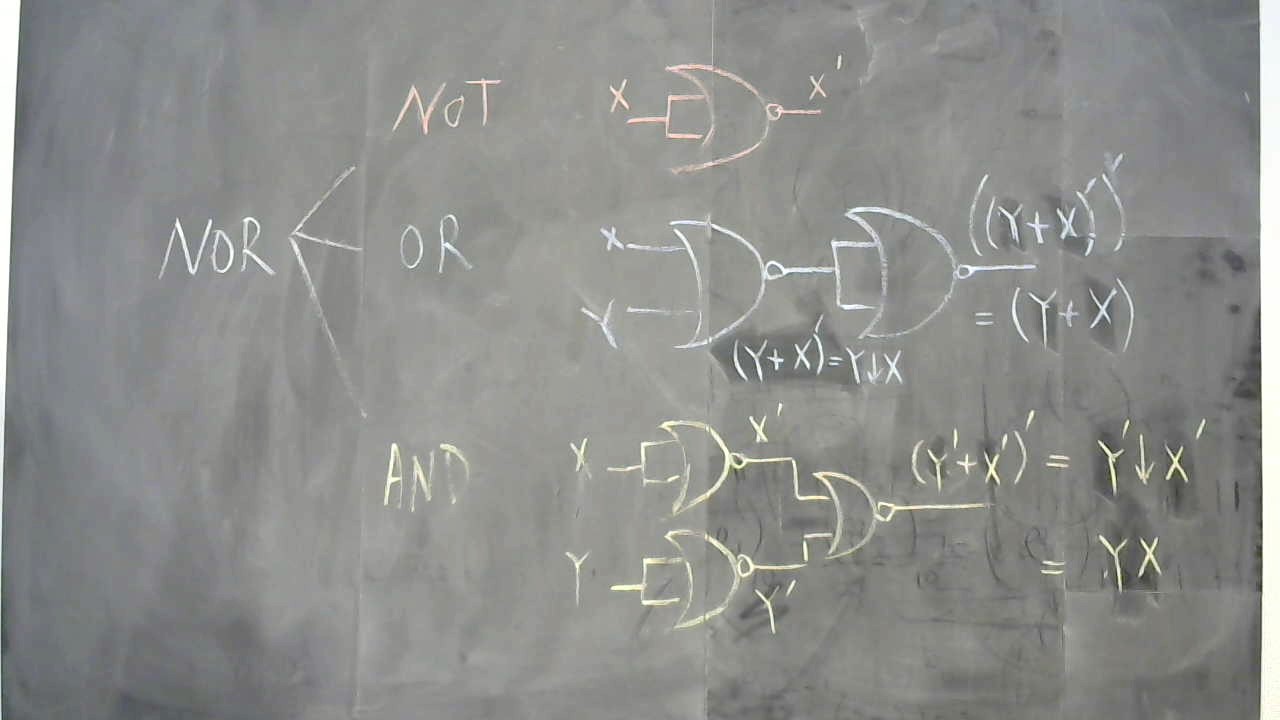 NOT X X'
NOR OR X Y ((Y+X)')'
= (Y+X)
(Y+X)'=Y↓X
AND X X' (Y'+X')' = Y'↓X'
Y Y' = YX